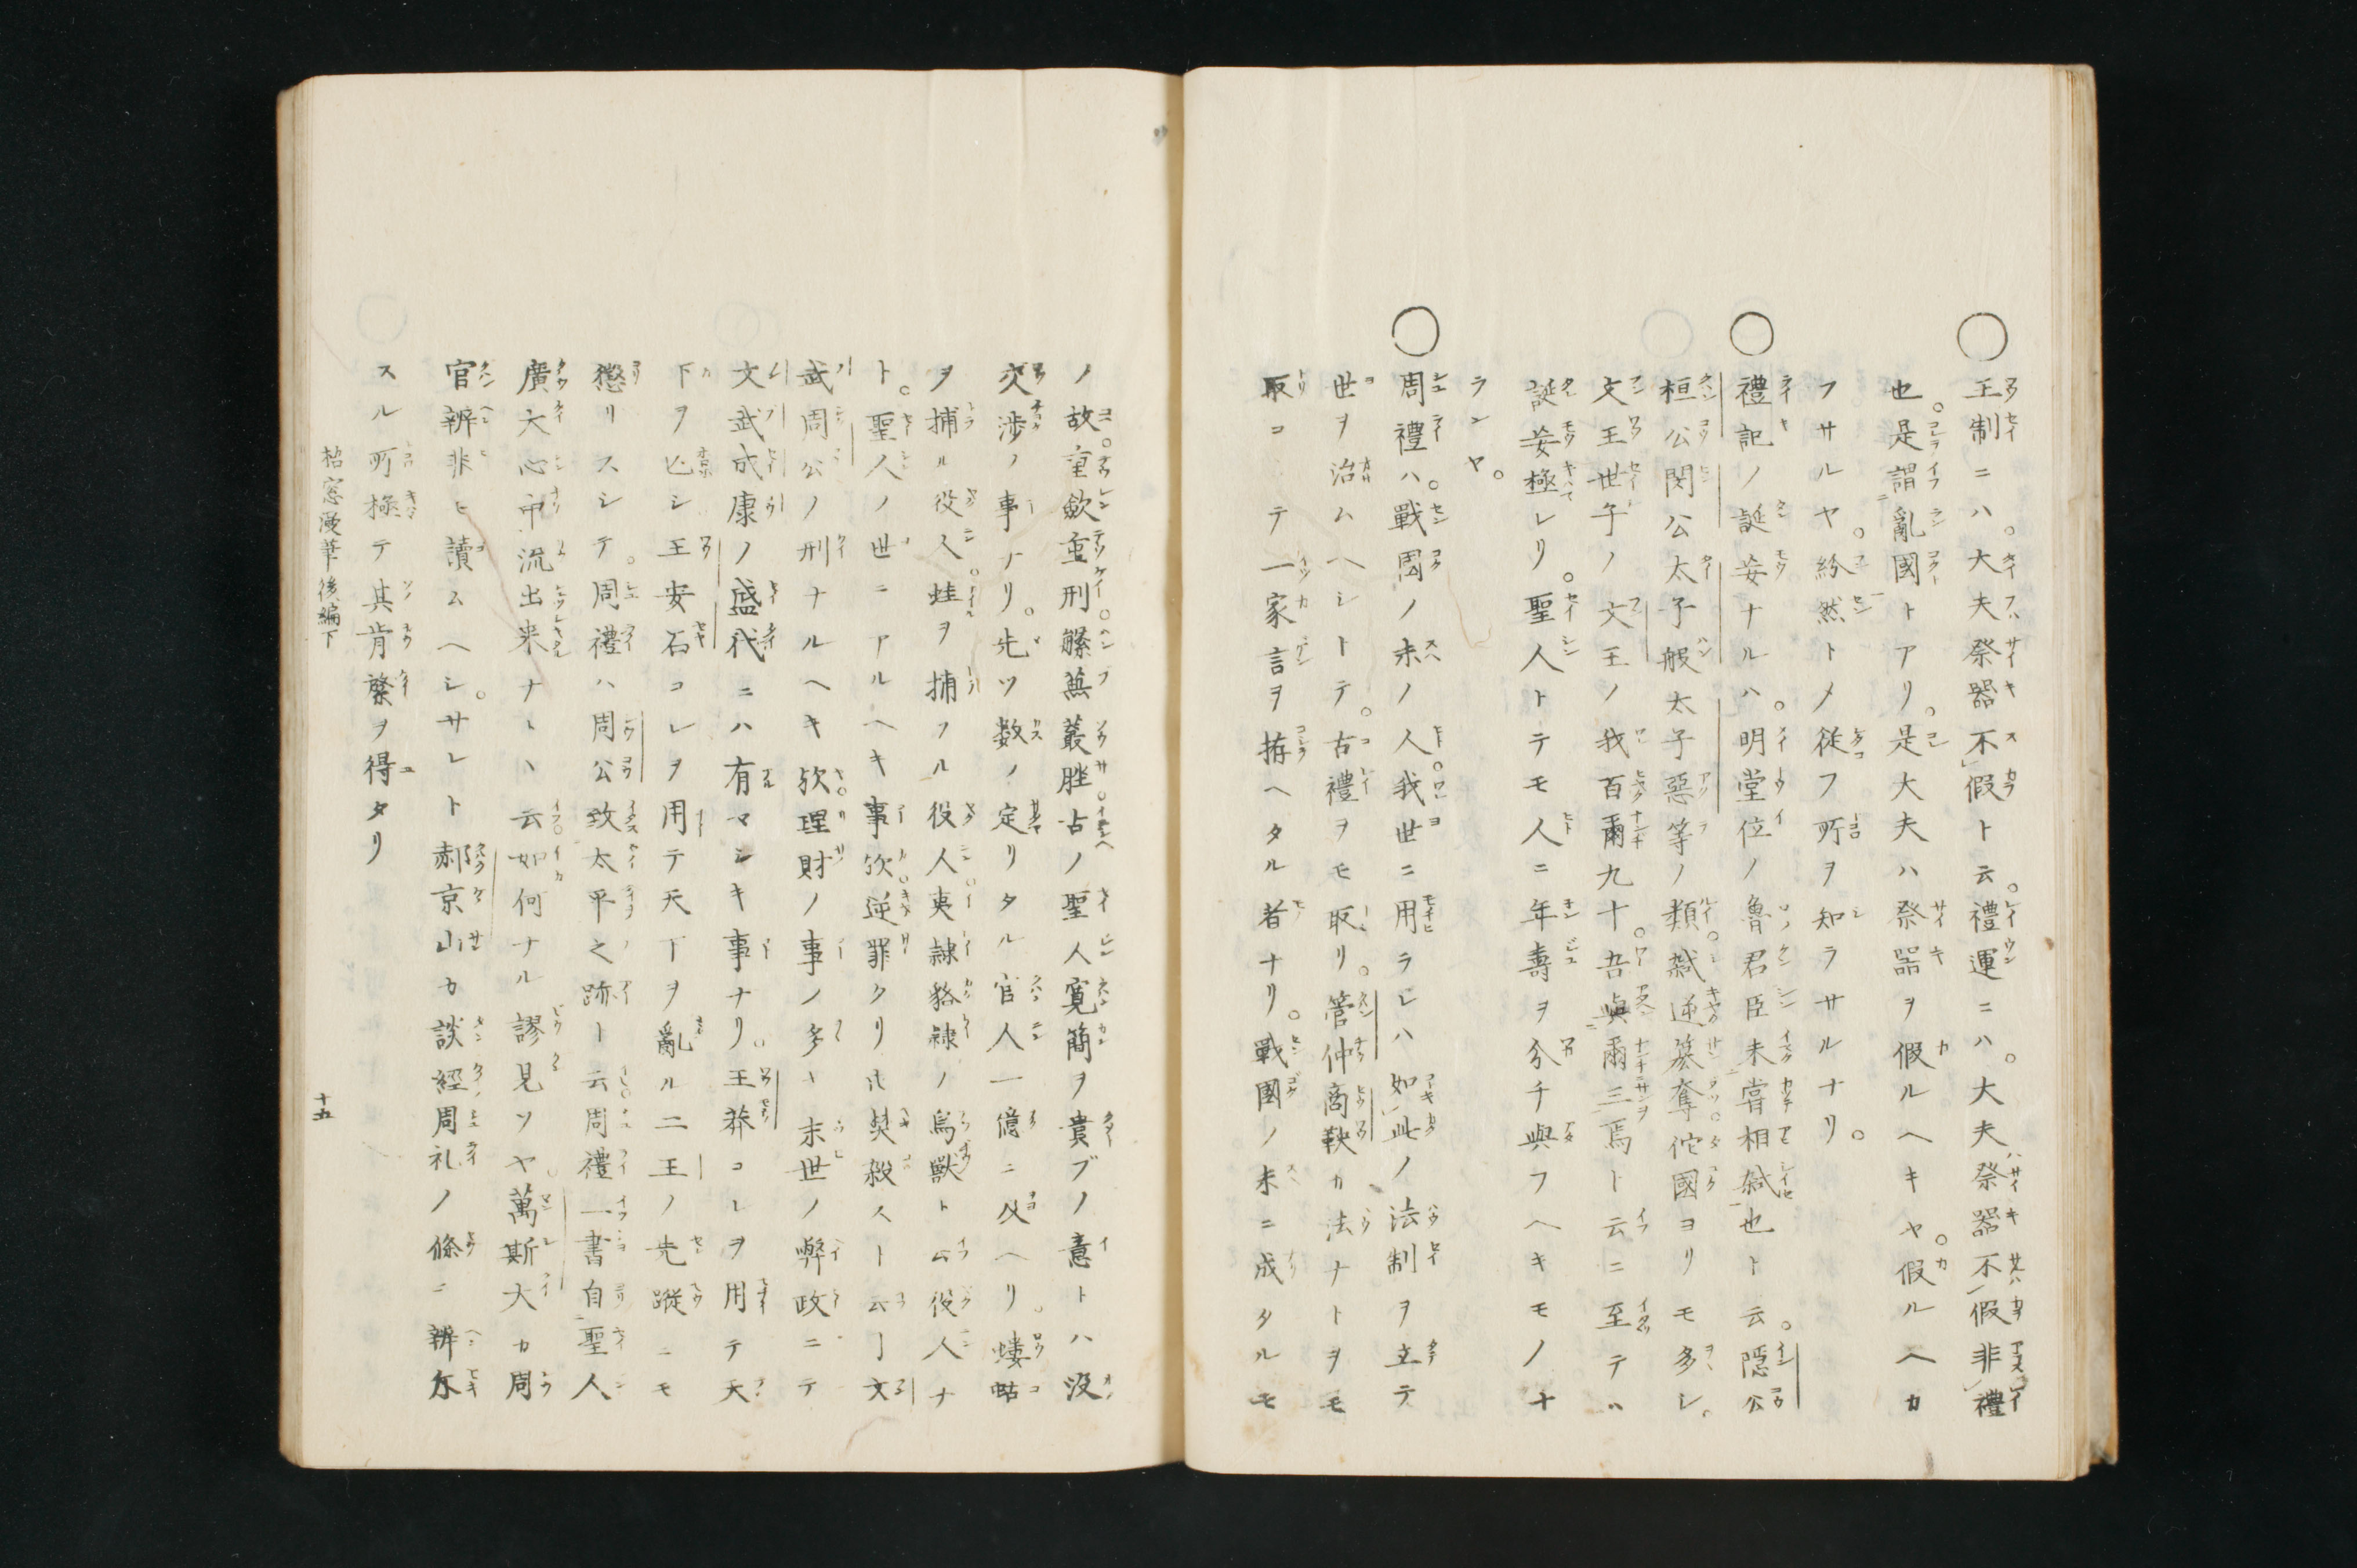 ○王制ニハ。大夫祭器不假ト云。禮運ニハ。大夫祭器不假非禮
也。是謂亂國トアリ。是大夫ハ祭器ヲ假ルヘキヤ。假ルヘカ
フサルヤ。紛然トメ従フ所ヲ知ラサルナリ。
○禮記ノ誕妄ナルハ。明堂位ノ魯君臣未嘗相弑也ト云。隠公
桓公閔公太子般太子惡等ノ類。弑逆簒奪佗國ヨリモ多シ。
文王世子ノ文王ノ我百爾九十。吾與爾三焉ト云ニ至テハ
誕妄極レリ。聖人トテモ人ニ年壽ヲ分チ與フヘキモノナ
ランヤ。
○周禮ハ。戰國ノ末ノ人。我世ニ用ラレハ如此ノ法制ヲ立テ
世ヲ治ムヘシトテ。古禮ヲモ取リ。管仲商鞅カ法ナトヲモ
取コテ一家言ヲ拵ヘタル者ナリ。戰國ノ末ニ成タルモ
ノ故。重歛重刑。緐蕪叢脞。古ノ聖人寛簡ヲ貴ブノ意トハ没
交渉ノ事ナリ。先ツ数ノ定リタル官人一億ニ及ヘリ。螻蛄
ヲ捕ル役人。蛙ヲ捕フル役人。夷隷貉隷ノ鳥獣ト云役人ナ
ト。聖人ノ世ニアルヘキ事歟。逆罪クリ殺スト云フ文
武周公ノ刑ナルヘキ歟。理財ノ事ノ多キ末世ノ弊政ニテ
文武成康ノ盛代ニハ有マシキ事ナリ。王莽コレヲ用テ天
下ヲ亡シ王安石コレヲ用テ天下ヲ亂ル二王ノ先蹤ニモ
懲リスシテ。周禮ハ周公致太平之跡ト云周禮一書自聖人
廣大心中流出来ナトヽ云。如何ナル謬見ソヤ。萬斯大カ周
官辨非ヒ讀ムヘシ。サレト郝京山カ談經周礼ノ條ニ辨
スル所極テ其肯綮ヲ得タリ
梧窓漫筆後編下
十五